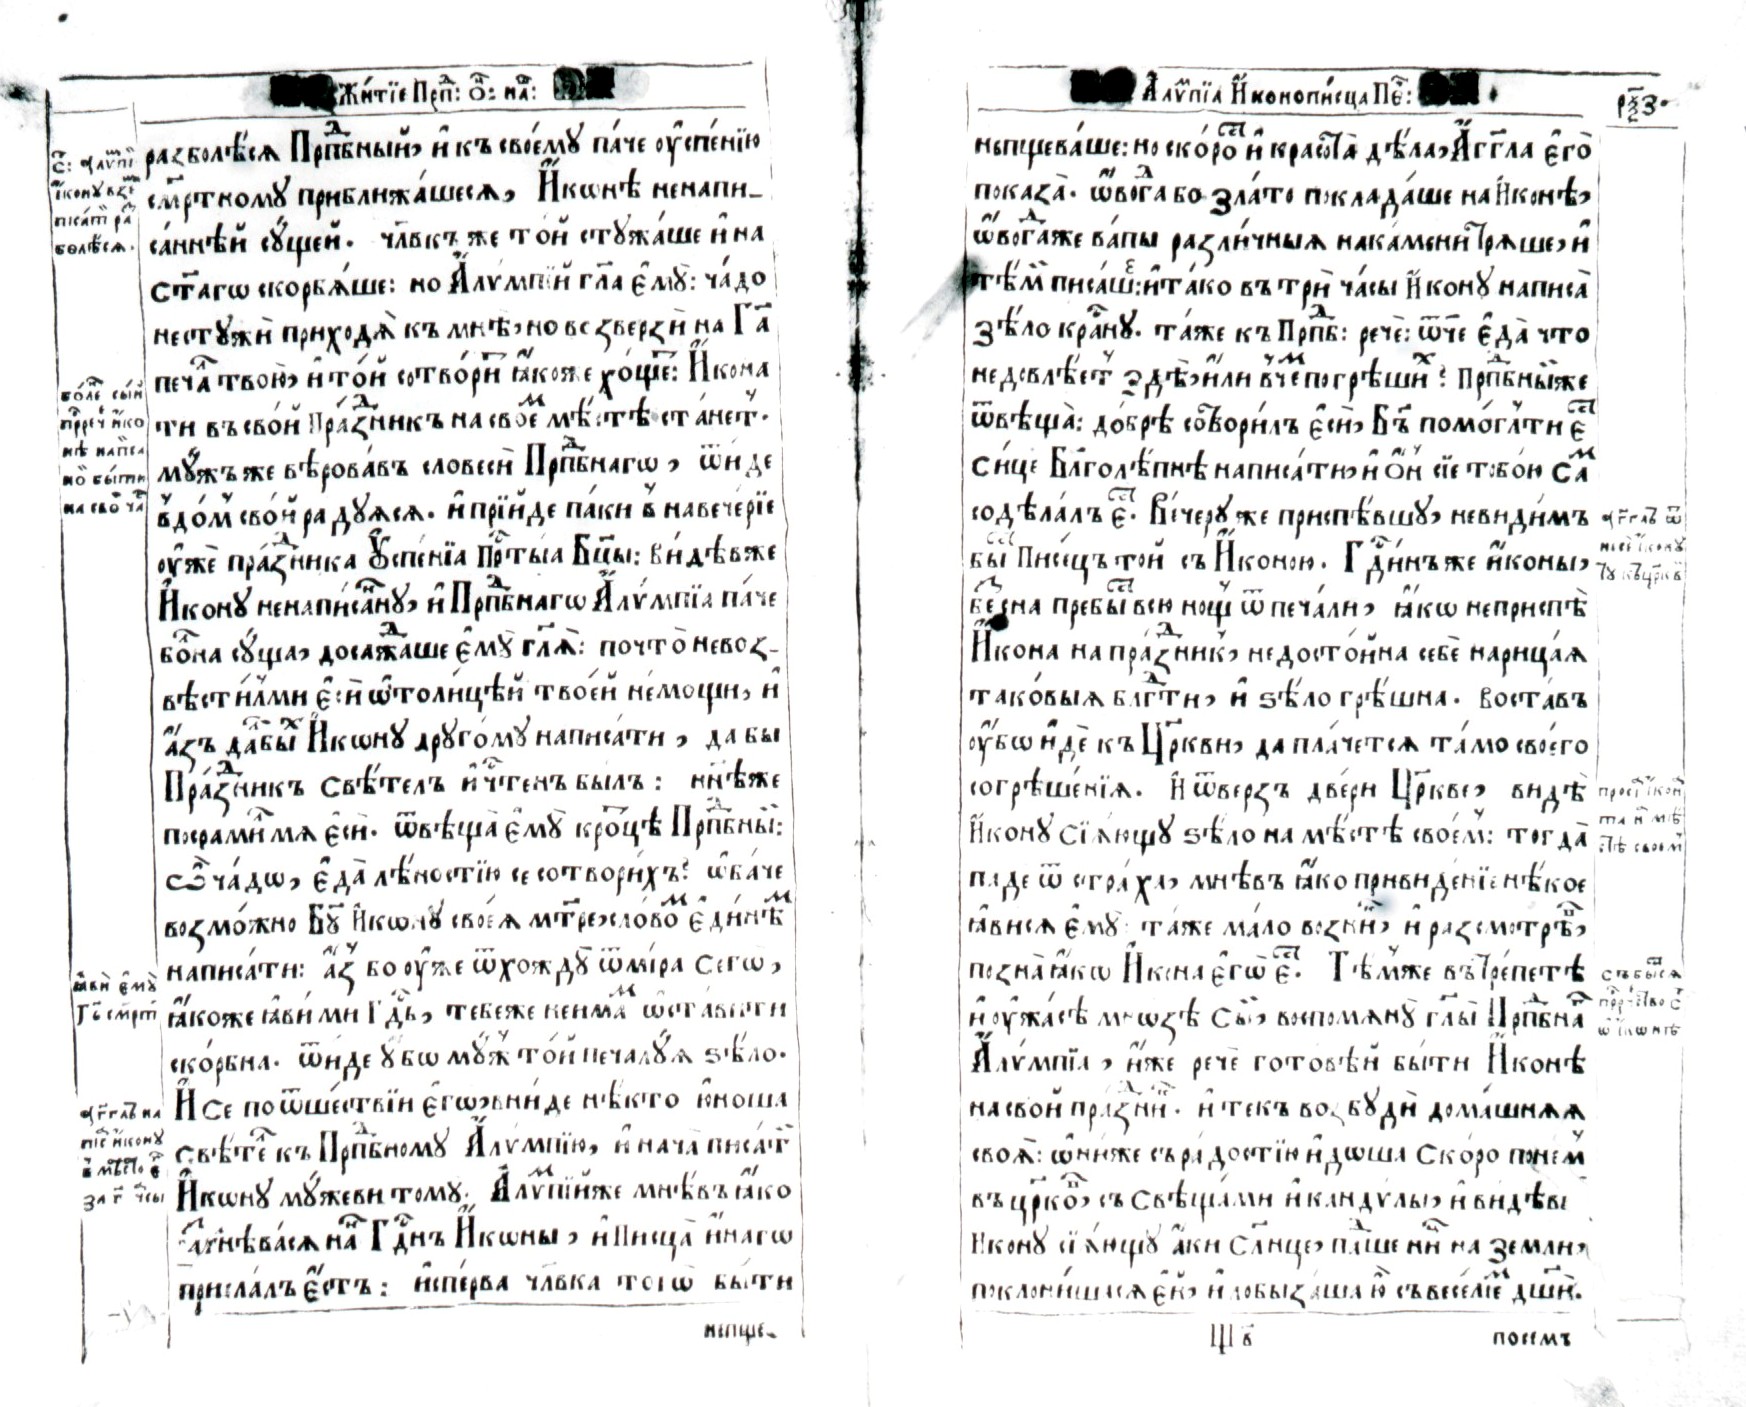 Житїе Прпⷣ: Оⷩ: на́:
разболѣ́сѧ Прпⷣбный, и҆ къ своемꙋ па́че оу҆спе́нїю
сме́ртномꙋ приближа́шесѧ, И҆кѡнѣ ненапи_
са́ннѣй сꙋ́щей. чл҃вкъ же то́й стꙋжа́ше и҆ на
ст҃а́гѡ скорбѧ́ше: но А҆лѵмпїй гл҃а є҆мꙋ̀: ча́до
нестꙋжѝ приходѧ̀ къ мнѣ̀, но возверзѝ на Гд҃а
печа́л твою̀, и҆ то́й сотвори́т ꙗ҆́коже хо́щет: И҆кона
ти въ сво́й Пра́зⷣникъ на свое́м мѣ́стѣ ста́нет.
мꙋ́жъ же вѣрова́въ словесѝ Прпⷣбнагѡ, ѿи́де
в до́м сво́й ра́дꙋѧсѧ. и҆ прїи́де па́ки в навече́рїе
оу҆жѐ пра́зⷣника Оу҆спе́нїа Прⷭ҇ты́ѧ Бц҃ы: ви́дѣвже
И҆конꙋ ненапи́саннꙋ, и҆ Прпⷣбнагѡ А҆лѵ́мпїа па́че
бо́лна сꙋ́ща, досажⷣа́ше є҆мꙋ̀ гл҃ѧ: почто̀ невоз_
вѣсти́л ми є҆сѝ ѡ҆ толи́цѣй твое́й не́мощи, и҆
а҆́зъ да́л бы́х И҆кѡнꙋ дрꙋго́мꙋ написа́ти, да бы
Пра́зⷣникъ свѣ́телъ и҆ че́стенъ былъ: нн҃ѣже
посрами́л мѧ є҆сѝ. ѿвѣща̀ є҆мꙋ̀ кро́тцѣ Прпⷣбны́й:
ѽ ча́дѡ, є҆да̀ лѣ́ностїю се сотвори́хъ? ѡ҆ба́че
возмо́жно Бг҃ꙋ И҆кѡнꙋ своеѧ̀ Мт҃ре, сло́вом є҆ди́нѣм
написа́ти: а҆́з бо оу҆́же ѿхождꙋ̀ ѿ мі́ра сегѡ̀,
ꙗ҆́коже ꙗ҆ви́ ми Гдⷭ҇ь, тебе́же не и́мам ѡ҆ста́вити
ско́рбна. ѿи́де оу҆́бѡ мꙋ́ж то́й печа́лꙋѧ ѕѣ́ло.
И҆ се по ѿше́ствїи є҆гѡ̀, вни́де нѣ́кто ю҆́ноша
свѣ́тел къ Прпⷣбномꙋ А҆лѵ́мпїю, и҆ нача̀ писа́ти
И҆кѡнꙋ мꙋ́жеви томꙋ̀. А҆лѵ́мпїйже мнѣ́въ ꙗ҆́ко
гнѣ́васѧ на́нь Гдⷭ҇и́нъ И҆кѡны, и҆ писца̀ и҆на́гѡ
присла́лъ є҆́стъ: и҆спе́рва чл҃вка того̀ бы́ти
непще_
боле́ сы́й
прⷪ҇рече́ и҆ко
нѣ напи́са
но́ бы́ти
на сво́й ча́с
ꙗ҆вѝ є҆мꙋ̀
Гдⷭ҇ь сме́рть
А҆́гг҃лъ на
пи́с и҆́конꙋ
за г҃ часы̀
А҆лѵ́пїа И҆конопи́сца Пе́ч:
рѯ҃з
непщева́ше: но ско́рость и҆ красота̀ дѣ́ла, А҆́гг҃ла є҆го̀
показа̀. ѡ҆вогⷣа бо зла́то поклада́ше на И҆ко́нѣ,
ѡ҆вогⷣа же ва́пы разли́чныѧ на ка́мени трѧ́ше, и҆
тѣ́ми писа́ше: и҆ та́ко въ трѝ часы̀ И҆конꙋ написа̀
зѣ́ло кра́снꙋ. та́же къ Прпⷣб: речѐ: ѿч҃е є҆да̀ что
недовлѣ́ет здѣ̀, и҆лѝ в че́м погрѣши́х? Прпⷣбны́йже
ѿвѣща̀: до́брѣ сотвори́лъ є҆сѝ, Бг҃ъ помо́гл ти є҆́сть
си́це Бл҃голѣ́пнѣ написа́ти, и҆ О҆́н сїе тобо́ю Са́м
содѣ́лалъ є҆́сть. Ве́черꙋ же приспѣ́вшꙋ, неви́димъ
бы́сть Писе́цъ то́й съ И҆ко́ною. Гдⷭ҇и́нъже и҆коны,
без сна пребы́сть всю но́щ ѿ печа́ли, ꙗ҆́кѡ неприспѣ̀
И҆кона на пра́зⷣник, недосто́йна себѐ нарица́ѧ
тако́выѧ благⷣти, и҆ ѕѣ́ло грѣ́шна. Воста́въ
оу҆́бѡ и҆́де къ Цр҃кви, да пла́четсѧ та́мо своего̀
согрѣше́нїѧ. И҆ ѿве́рзъ две́ри Цр҃кве, ви́дѣ
И҆конꙋ сїѧ́ющꙋ ѕѣ́ло на мѣ́стѣ свое́м: тогда̀
паде ѿ стра́ха, мнѣ́въ ꙗ҆́ко привиде́нїе нѣ́кое
ꙗ҆ви́сѧ є҆мꙋ̀: та́же ма́ло возни́к, и҆ разсмотрѣ́в,
позна̀ ꙗ҆́кѡ И҆кона є҆гѡ̀ є҆́сть. Тѣ́мже въ тре́петѣ
и҆ оу҆́жасѣ мно́зѣ сы́й, воспомѧнꙋ̀ гл҃ы̀ Прпⷣбнаг
А҆лѵ́мпїа, и҆́же речѐ гото́вѣй бы́ти И҆ко́нѣ
на сво́й пра́зⷣник. и҆ текъ возбꙋдѝ дома́шнѧѧ
своѧ̀: ѻ҆ни́же съ ра́достїю и҆до́ша ско́ро по не́м
въ цр҃ков, съ свѣща́ми и҆ канди́лы, и҆ ви́дѣвше
И҆конꙋ сїѧ́ющꙋ а҆́ки Сл҃нце, па́дше ни́ц на земли́,
поклони́шасѧ є҆́й, и҆ лобыза́ша ю҆̀ съ весе́лїем дш҃ѝ.
Щ в҃
посемъ
А҆́гг҃лъ ѿ
несѐ и҆конꙋ
тꙋ къ цр҃кв
съ бы́стсѧ
прⷪ҇ро́чество
ѡ҆ і҆кѡнѣ